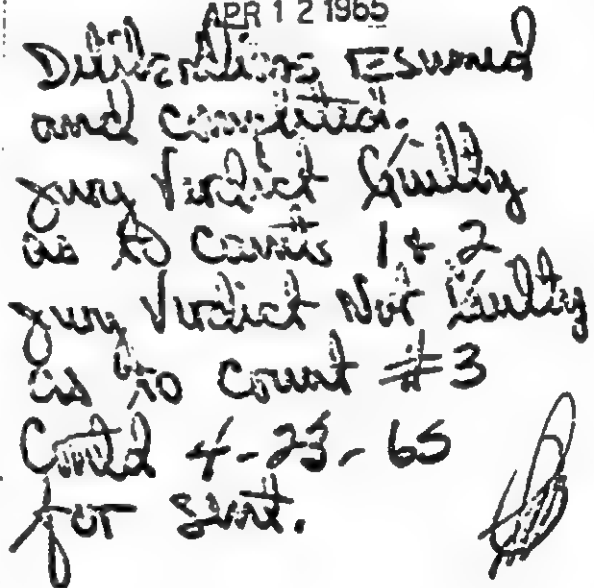 APR 12 1965
Deliberations resumed
and completed.
Jury Verdict Guilty
as to counts 1 & 2
Jury Verdict Not Guilty
as to count #3
Contd 4-23-65
for sent.